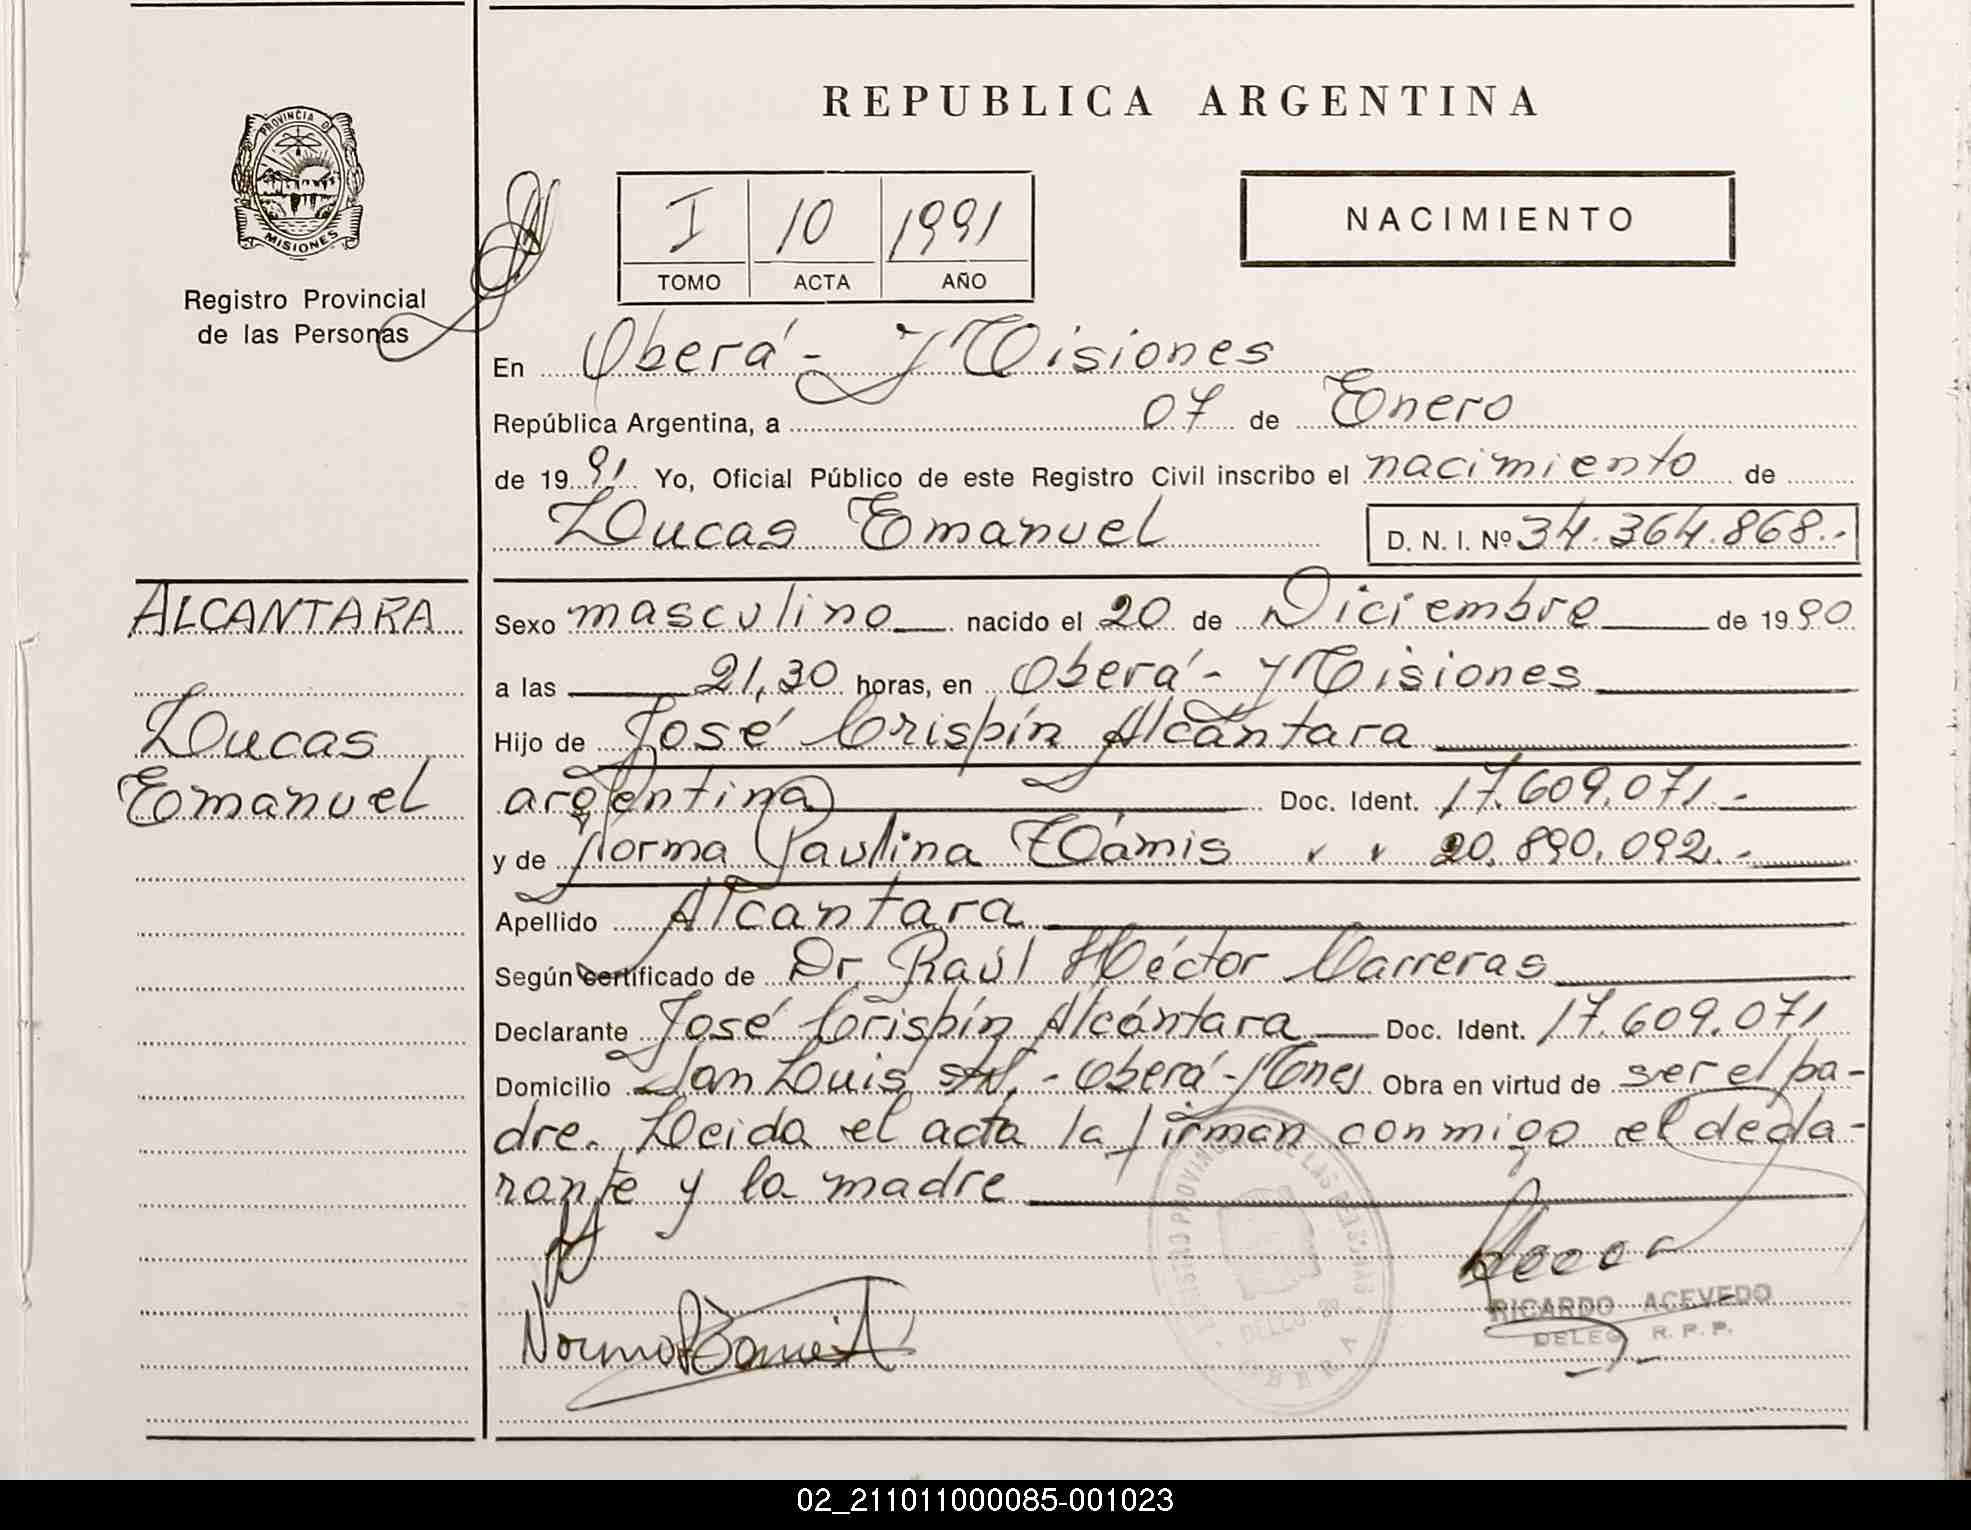 REPUBLICA ARGENTINA
PROVINCIA D
MISIONES
Registro Provincial
de las Personas
I 10 1991
TOMO ACTA AÑO
NACIMIENTO
En Oberá - Misiones
República Argentina, a 07 de Enero
de 1991 Yo, Oficial Público de este Registro Civil inscribo el nacimiento de
Lucas Emanuel D. N. I. Nº 34.364.868.-
ALCANTARA
Lucas
Emanuel
Sexo masculino nacido el 20 de Diciembre de 1990
a las 21,30 horas, en Oberá - Misiones
Hijo de José Crispín Alcántara
argentina Doc. Ident. 17.609.071.-
y de Norma Paulina " " 20.890.092.-
Apellido Alcantara
Según certificado de Dr. Raúl Héctor Carreras
Declarante José Crispín Alcántara Doc. Ident. 17.609.071
Domicilio San Luis s/n. - Oberá - Mnes Obra en virtud de ser el pa-
dre. Leida el acta la firman conmigo el decla-
rante y la madre
RICARDO ACEVEDO
DELEG. R. P. P.
02_211011000085-001023